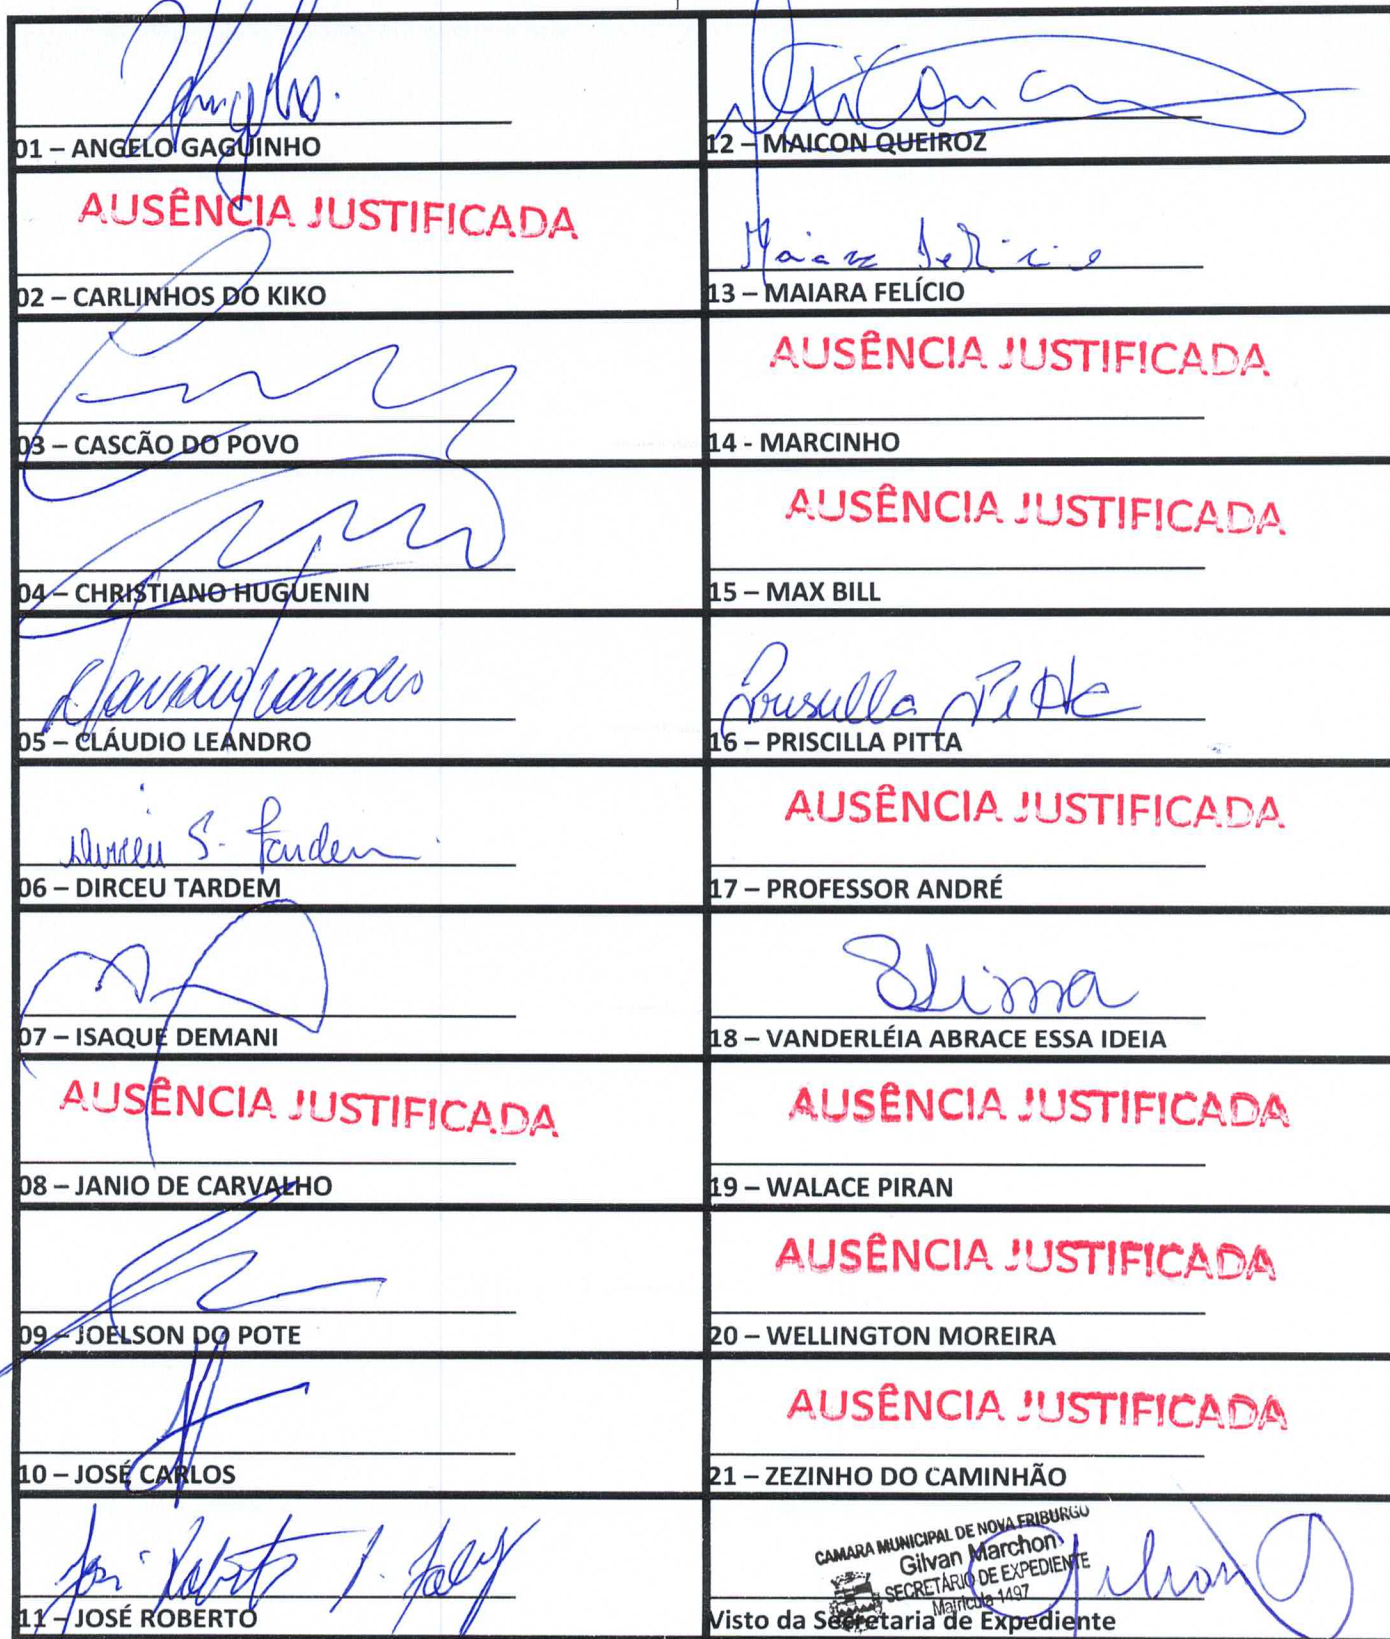 01 – ANGELO GAGUINHO
AUSÊNCIA JUSTIFICADA
02 – CARLINHOS DO KIKO
03 – CASCÃO DO POVO
04 – CHRISTIANO HUGUENIN
05 – CLÁUDIO LEANDRO
Dirceu S. Tardem
06 – DIRCEU TARDEM
07 – ISAQUE DEMANI
AUSÊNCIA JUSTIFICADA
08 – JANIO DE CARVALHO
09 – JOELSON DO POTE
10 – JOSÉ CARLOS
José Roberto
11 – JOSÉ ROBERTO
Maicon
12 – MAICON QUEIROZ
Maiara Felício
13 – MAIARA FELÍCIO
AUSÊNCIA JUSTIFICADA
14 - MARCINHO
AUSÊNCIA JUSTIFICADA
15 – MAX BILL
Priscilla Pitta
16 – PRISCILLA PITTA
AUSÊNCIA JUSTIFICADA
17 – PROFESSOR ANDRÉ
18 – VANDERLÉIA ABRACE ESSA IDEIA
AUSÊNCIA JUSTIFICADA
19 – WALACE PIRAN
AUSÊNCIA JUSTIFICADA
20 – WELLINGTON MOREIRA
AUSÊNCIA JUSTIFICADA
21 – ZEZINHO DO CAMINHÃO
CAMARA MUNICIPAL DE NOVA FRIBURGO
Gilvan Marchon
SECRETÁRIO DE EXPEDIENTE
Matrícula 1497
Visto da Secretaria de Expediente